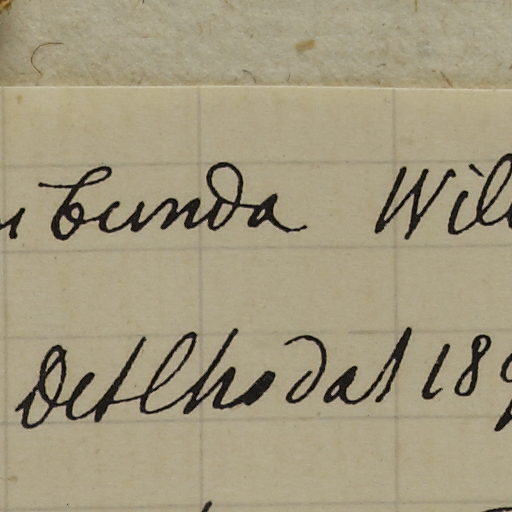 bunda Wil
Det Chodat 189